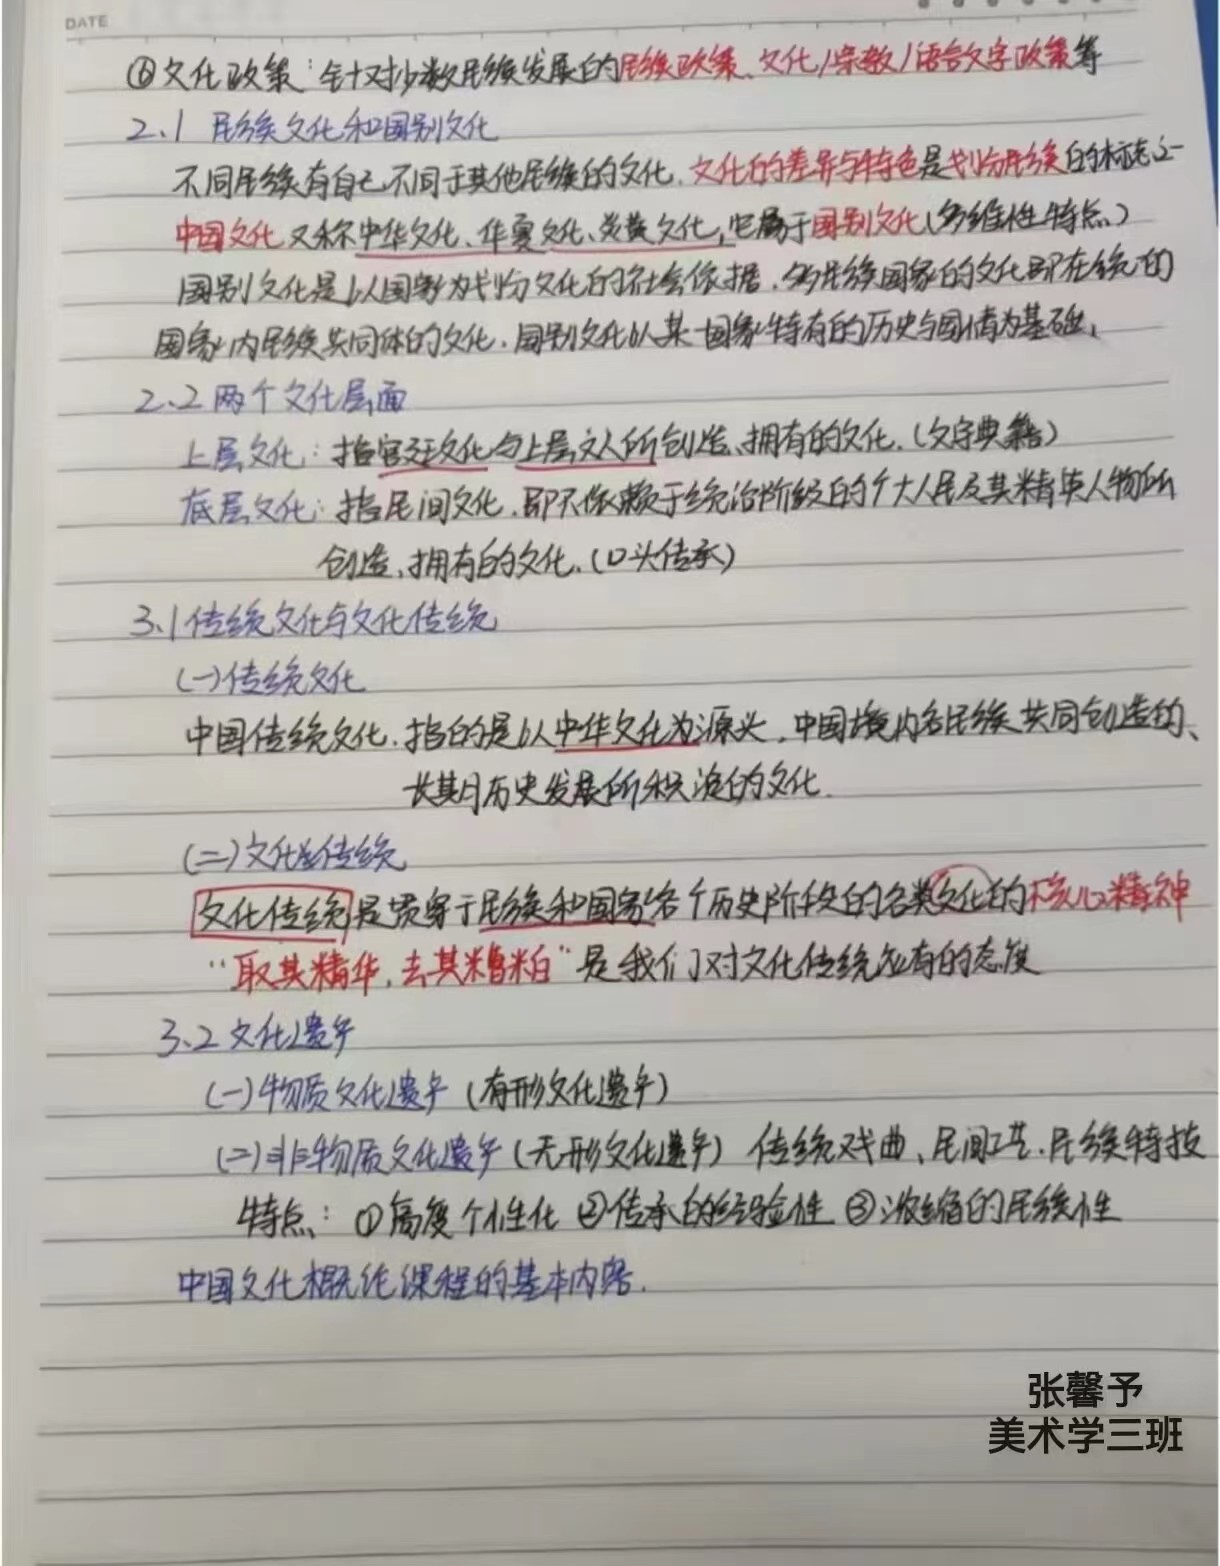 DATE
⑥文化政策：针对少数民族发展的民族政策、文化/宗教/语言文字政策等
2.1 民族文化和国别文化
不同民族有自己不同于其他民族的文化.文化的差异与特色是划分民族的标志之一
中国文化又称中华文化、华夏文化、炎黄文化,它属于国别文化(多维性特点.)
国别文化是以国家为划分文化的社会依据.多民族国家的文化即在统一的
国家内民族共同体的文化.国别文化以某一国家特有的历史与国情为基础.
2.2 两个文化层面
上层文化：指宫廷文化与上层文人所创造、拥有的文化.(文字典籍)
底层文化：指民间文化.即不依赖于统治阶级的个大人民及其精英人物所
创造、拥有的文化.(口头传承)
3.1传统文化与文化传统
(一)传统文化
中国传统文化.指的是以中华文化为源头.中国境内各民族共同创造的、
长期历史发展所积淀的文化.
(二)文化传统
文化传统是贯穿于民族和国家各个历史阶段的各类文化的核心精神
“取其精华,去其糟粕”是我们对文化传统应有的态度
3.2 文化遗产
(一)物质文化遗产(有形文化遗产)
(二)非物质文化遗产(无形文化遗产) 传统戏曲、民间工艺.民族特技
特点：①高度个性化 ②传承的经验性 ③浓缩的民族性
中国文化概论课程的基本内容.
张馨予
美术学三班